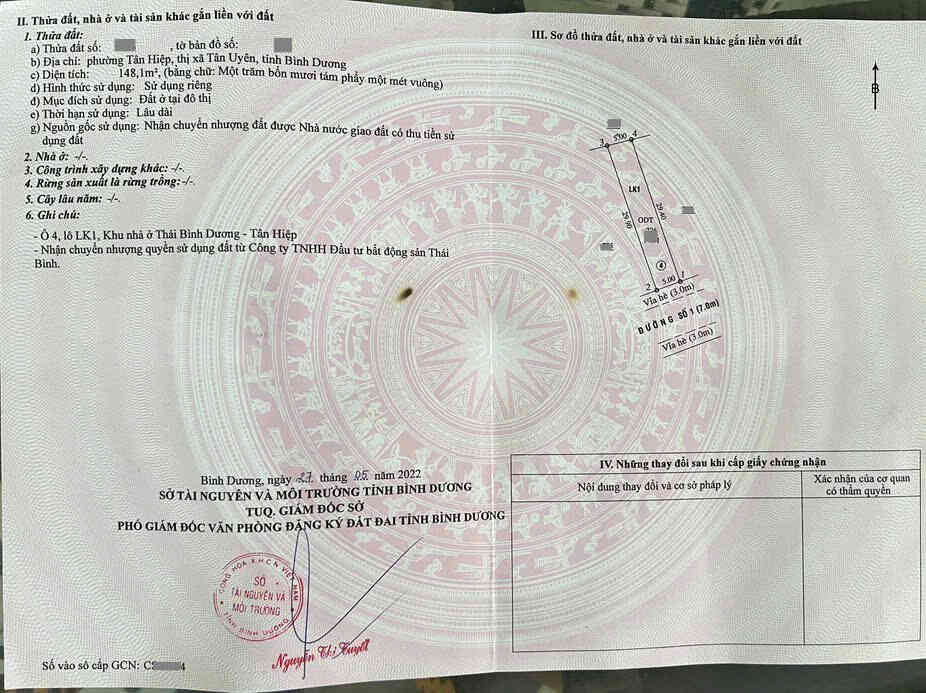 II. Thửa đất, nhà ở và tài sản khác gắn liền với đất
1. Thửa đất:
a) Thửa đất số: , tờ bản đồ số:
b) Địa chỉ: phường Tân Hiệp, thị xã Tân Uyên, tỉnh Bình Dương
c) Diện tích: 148,1m², (bằng chữ: Một trăm bốn mươi tám phẩy một mét vuông)
d) Hình thức sử dụng: Sử dụng riêng
đ) Mục đích sử dụng: Đất ở tại đô thị
e) Thời hạn sử dụng: Lâu dài
g) Nguồn gốc sử dụng: Nhận chuyển nhượng đất được Nhà nước giao đất có thu tiền sử
dụng đất
2. Nhà ở: -/-.
3. Công trình xây dựng khác: -/-.
4. Rừng sản xuất là rừng trồng: -/-.
5. Cây lâu năm: -/-.
6. Ghi chú:
- Ô 4, lô LK1, Khu nhà ở Thái Bình Dương - Tân Hiệp
- Nhận chuyển nhượng quyền sử dụng đất từ Công ty TNHH Đầu tư bất động sản Thái
Bình.
Bình Dương, ngày 27 tháng 05 năm 2022
SỞ TÀI NGUYÊN VÀ MÔI TRƯỜNG TỈNH BÌNH DƯƠNG
TUQ. GIÁM ĐỐC SỞ
PHÓ GIÁM ĐỐC VĂN PHÒNG ĐĂNG KÝ ĐẤT ĐAI TỈNH BÌNH DƯƠNG
CỘNG HÒA XHCN VIỆT NAM
SỞ
TÀI NGUYÊN VÀ
MÔI TRƯỜNG
TỈNH BÌNH DƯƠNG
Nguyễn Thị Tuyết
Số vào sổ cấp GCN: CS 4
III. Sơ đồ thửa đất, nhà ở và tài sản khác gắn liền với đất
B
3 5.00 4
LK1
29.90 ODT 29.40
4
2 5.00 1
Vỉa hè (3.0m)
ĐƯỜNG SỐ 1 (7.0m)
Vỉa hè (3.0m)
IV. Những thay đổi sau khi cấp giấy chứng nhận
Nội dung thay đổi và cơ sở pháp lý
Xác nhận của cơ quan
có thẩm quyền